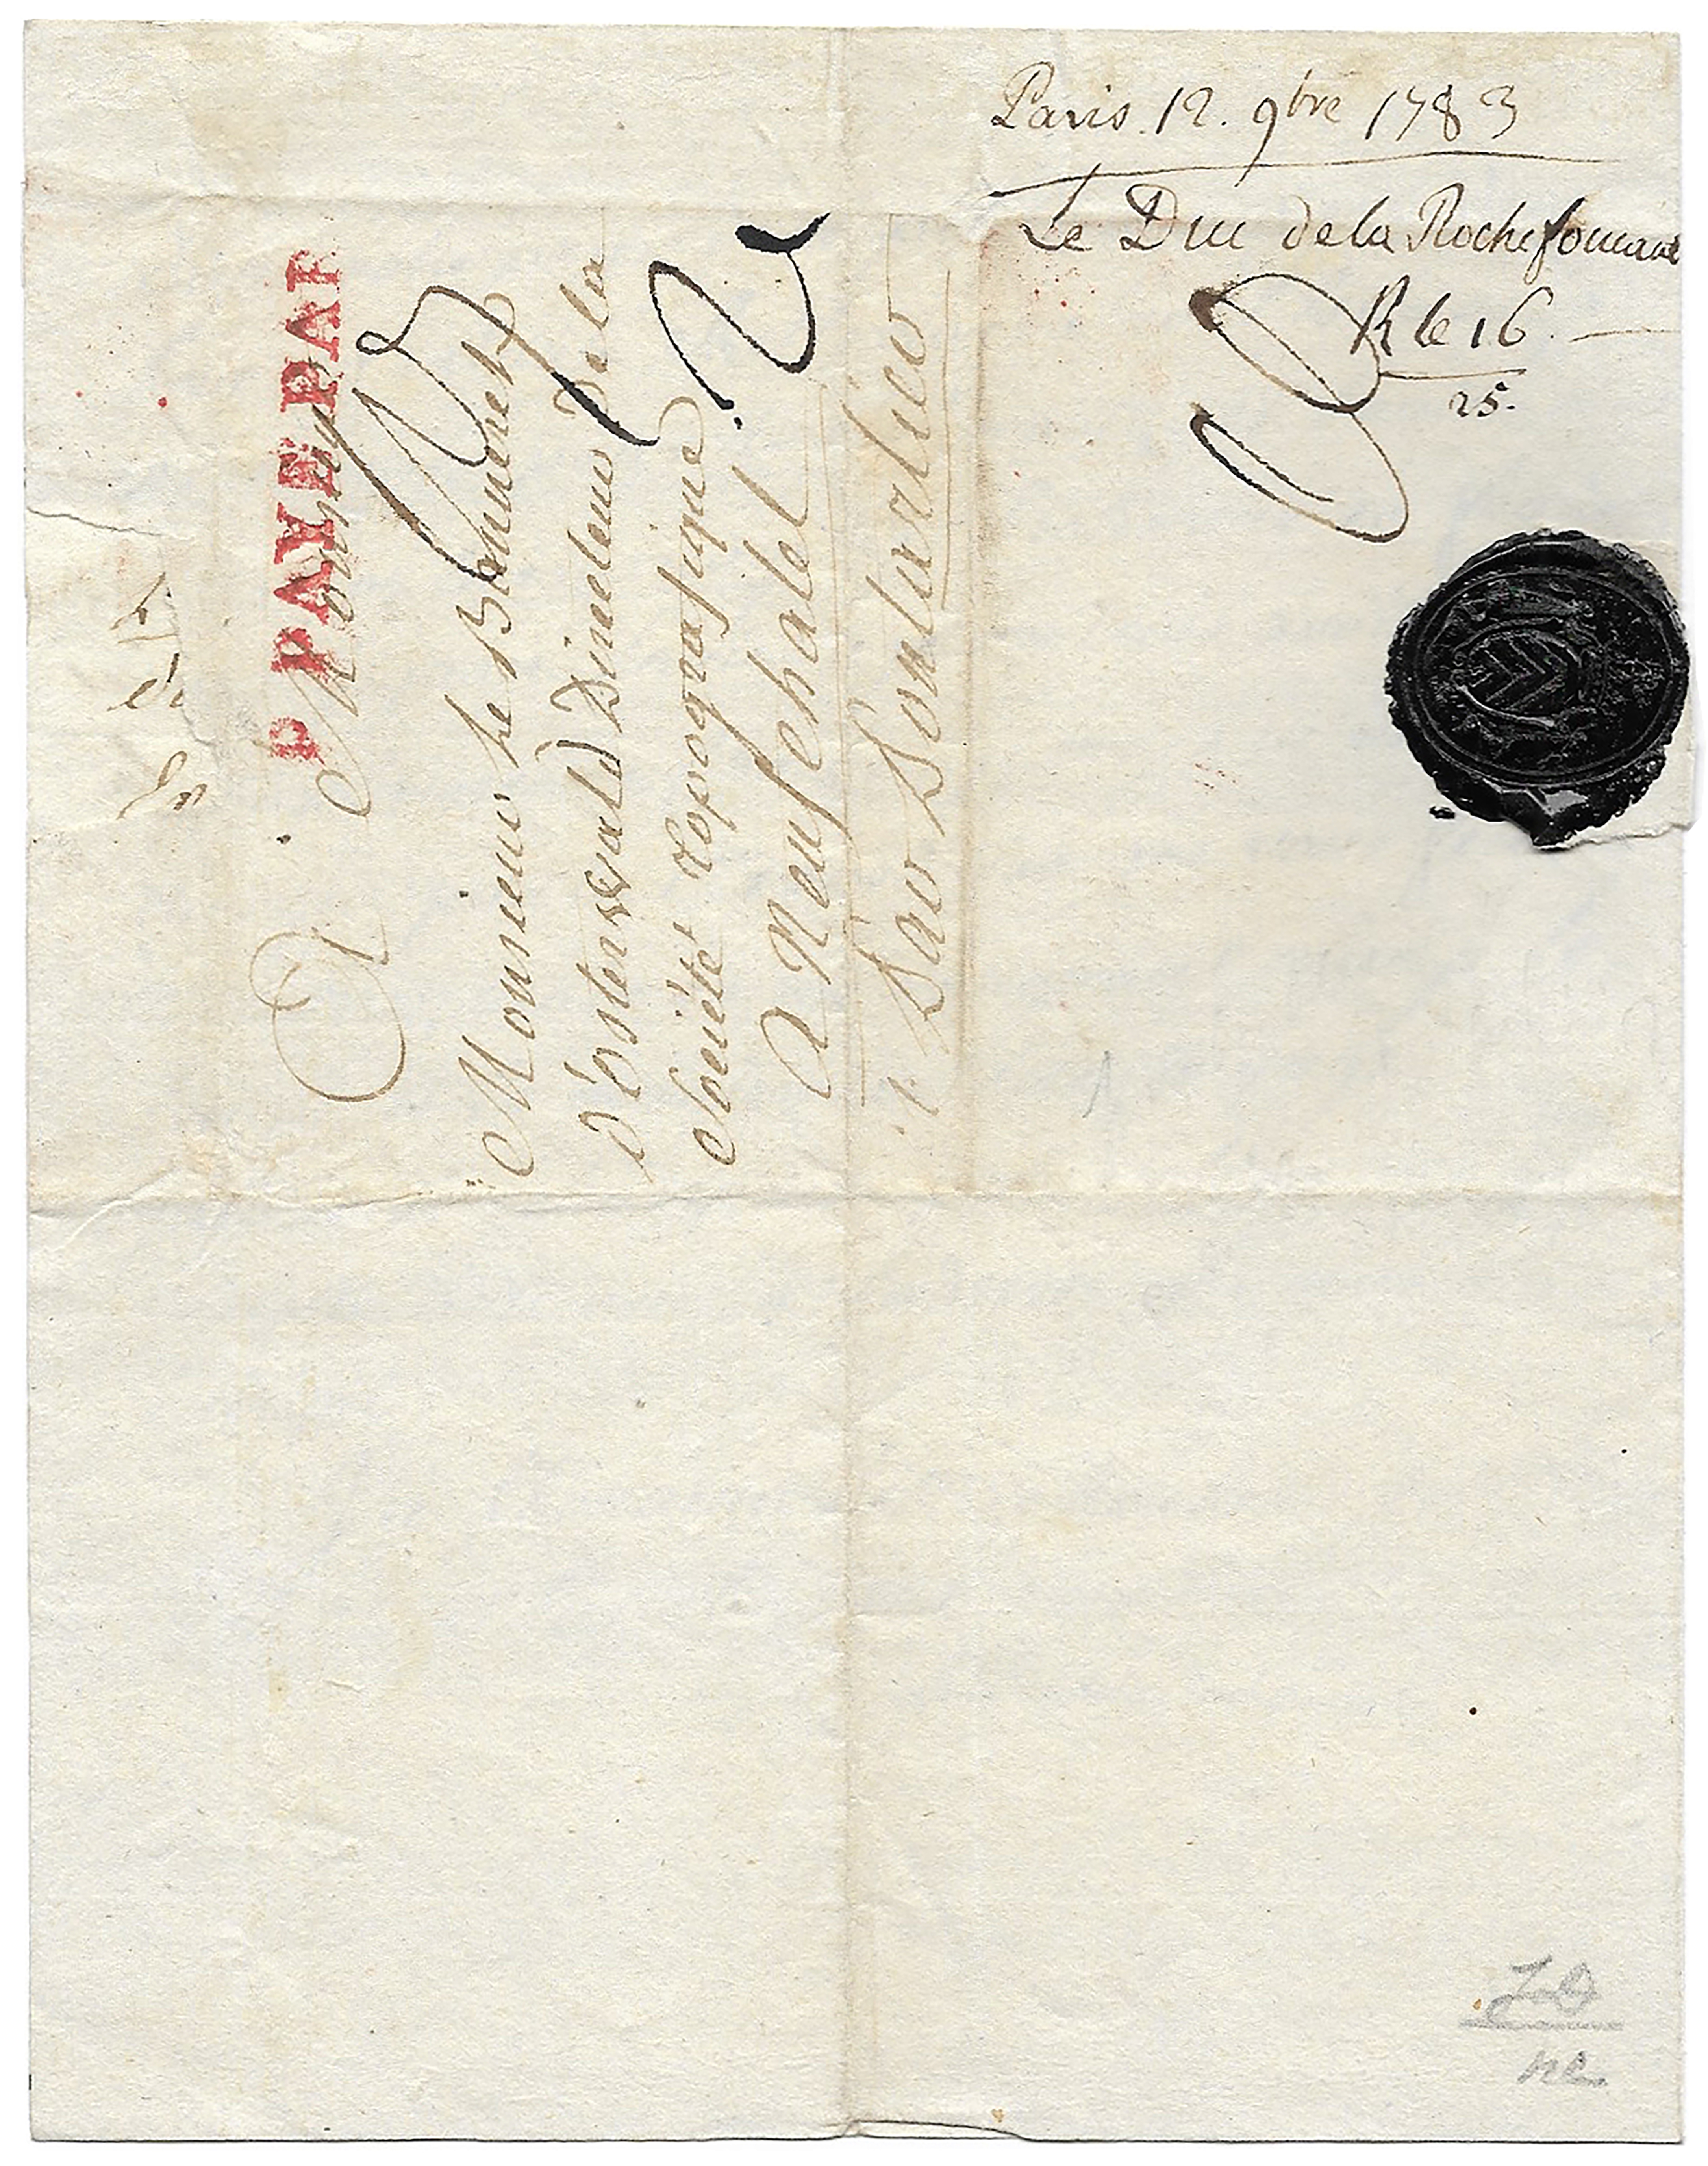 Paris. 12. 9bre 1783
Le Duc de la Rochefoucaud
R le 16.
25.
P PAYE PAR
A Monsieur
Monsieur Le Banneret
d'osterwald Directeur de la
Société topografique
A Neufchatel
par Pontarlier